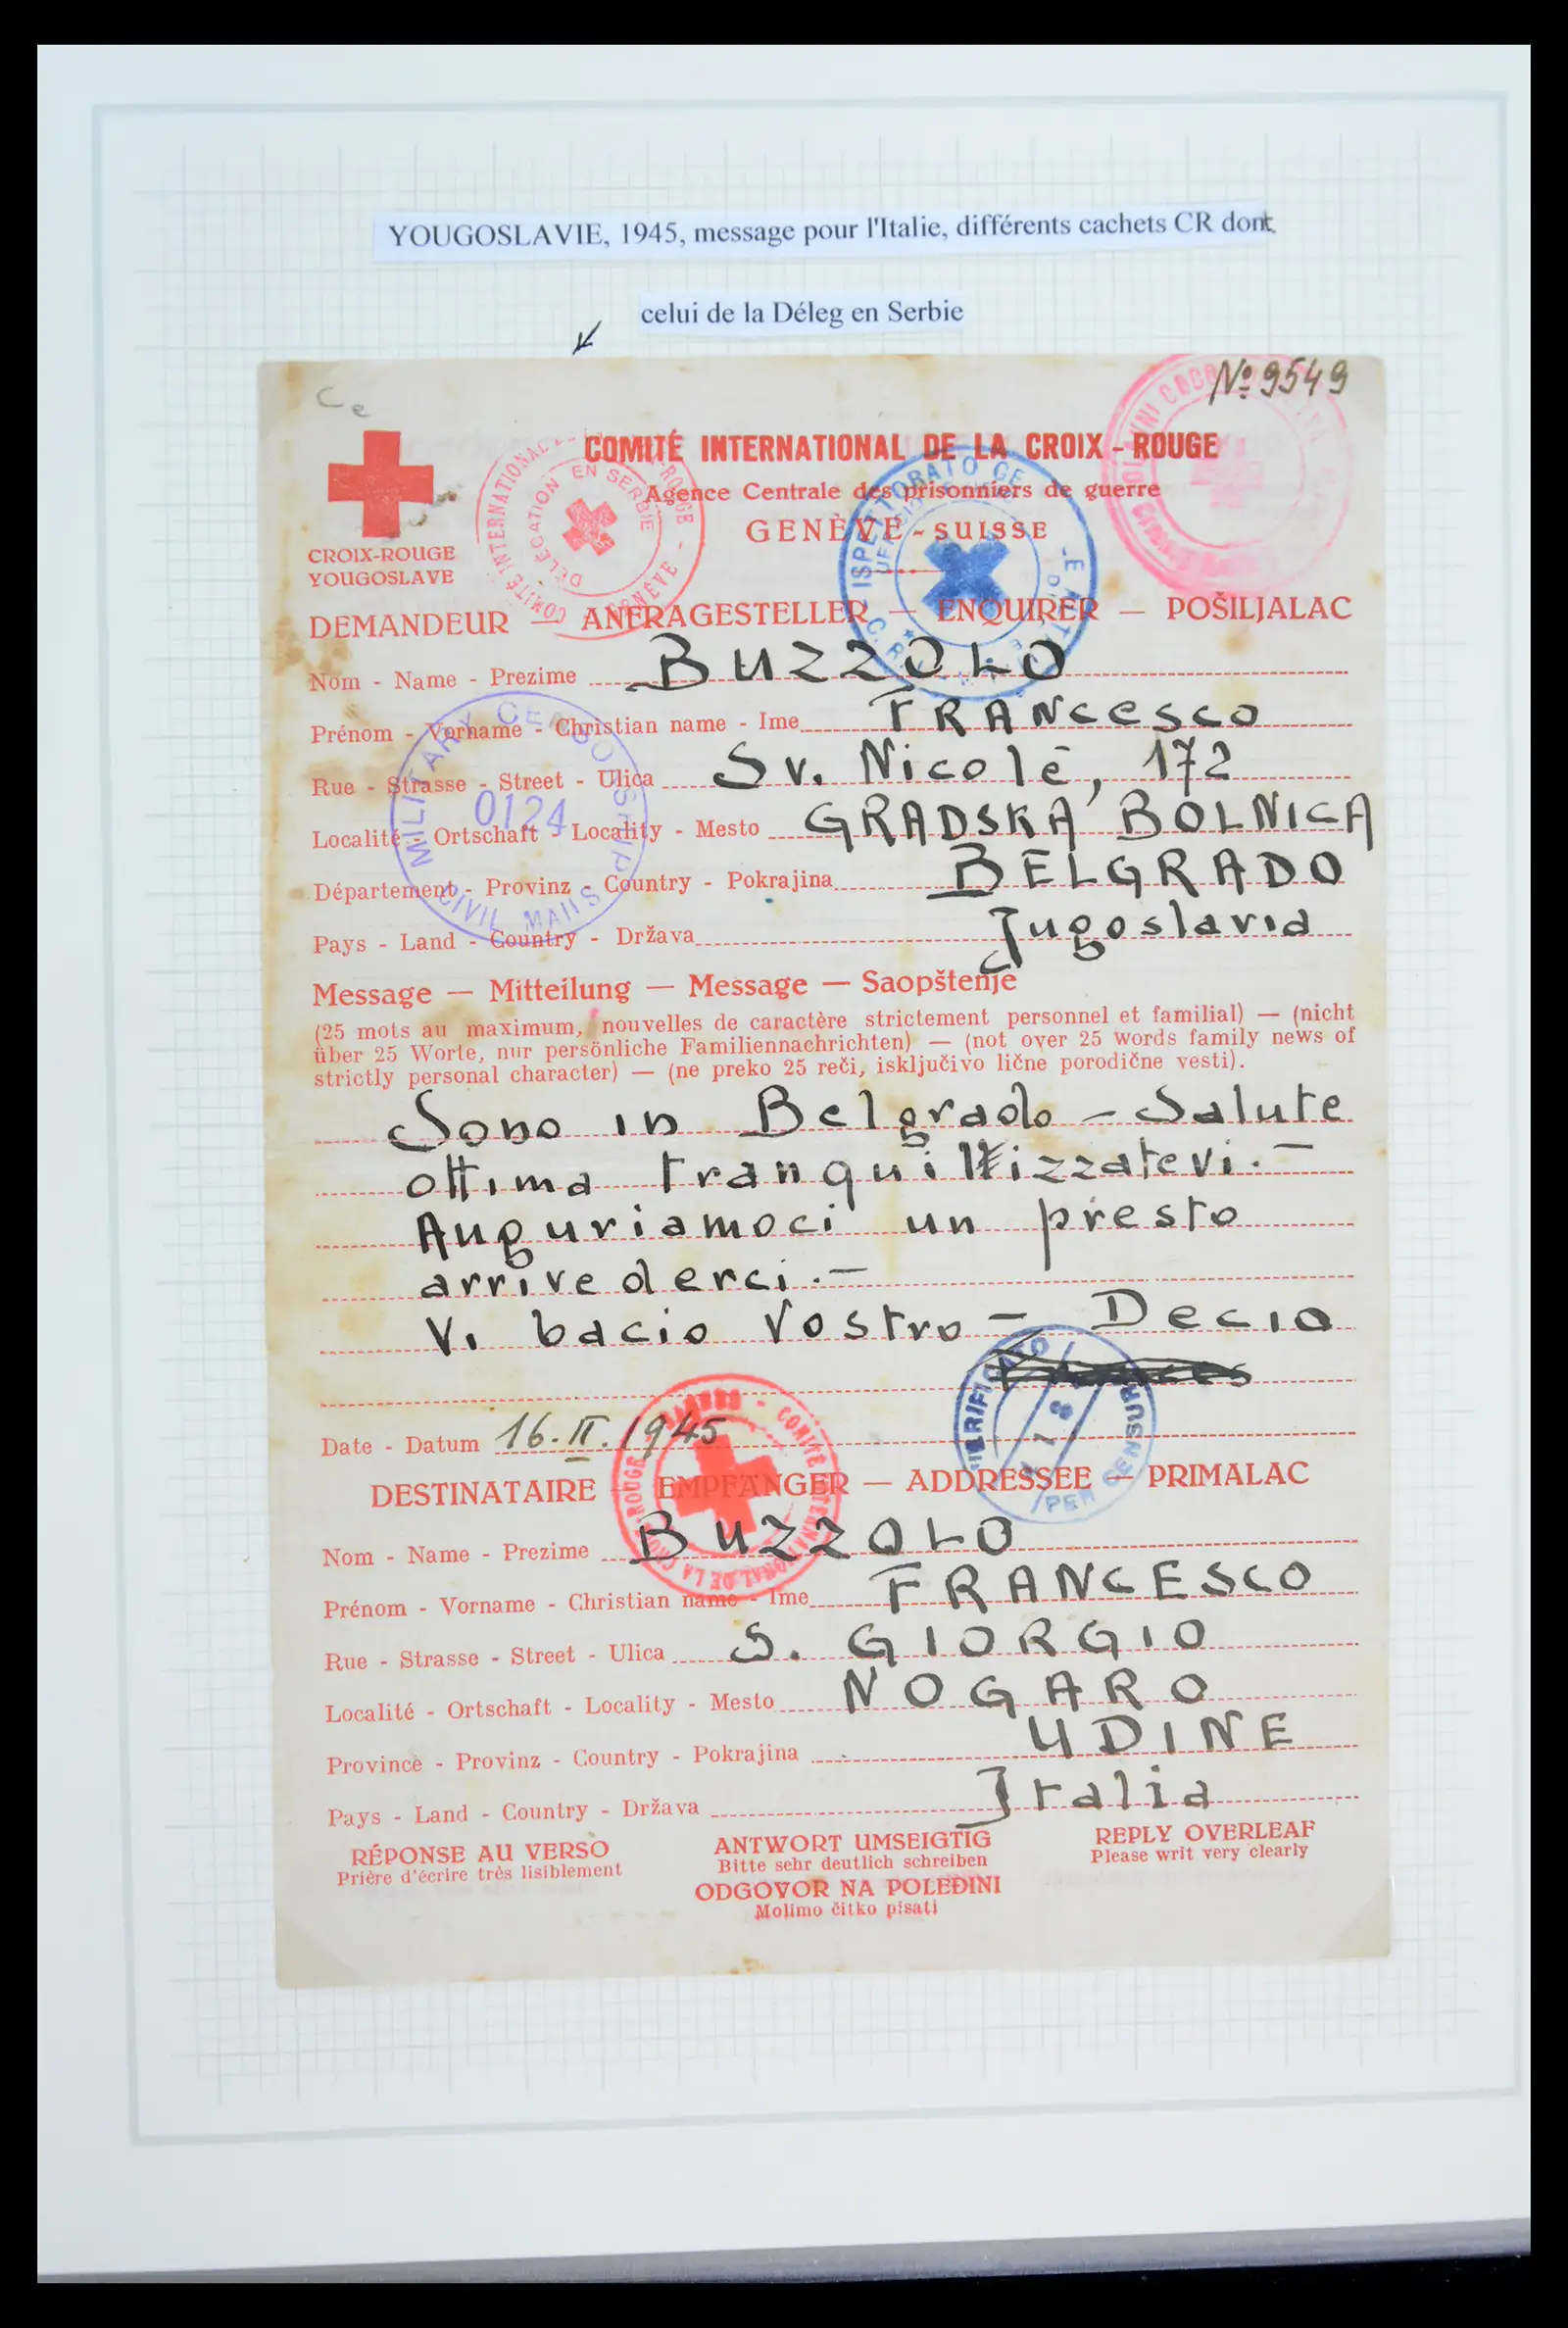 YOUGOSLAVIE, 1945, message pour l'Italie, différents cachets CR dont
celui de la Déleg en Serbie
Ce
№ 9549
COMITÉ INTERNATIONAL DE LA CROIX-ROUGE
Agence Centrale des prisonniers de guerre
GENÈVE - SUISSE
CROIX-ROUGE
YOUGOSLAVE
COMITÉ INTERNATIONAL DE LA CROIX-ROUGE - GENÈVE -
DÉLÉGATION EN SERBIE
ISPETTORATO GE
DEMANDEUR — ANFRAGESTELLER — ENQUIRER — POŠILJALAC
Nom - Name - Prezime BUZZOLO
Prénom - Vorname - Christian name - Ime FRANcesco
Rue - Strasse - Street - Ulica Sv. Nicolé, 172
Localité - Ortschaft - Locality - Mesto GRADSKA BOLNICA
Département - Provinz - Country - Pokrajina BELGRADO
Pays - Land - Country - Država Jugoslavia
MILITARY CENSORSHIP
0124
CIVIL MAILS
Message — Mitteilung — Message — Saopštenje
(25 mots au maximum, nouvelles de caractère strictement personnel et familial) — (nicht
über 25 Worte, nur persönliche Familiennachrichten) — (not over 25 words family news of
strictly personal character) — (ne preko 25 reči, isključivo lične porodične vesti).
Sono in Belgrado - Salute
ottima tranquillizzatevi. -
Auguriamoci un presto
arrivederci. -
Vi bacio Vostro - Decio
VERIFICATO PER CENSURA
Date - Datum 16.II.1945
COMITÉ INTERNATIONAL DE LA CROIX ROUGE
DESTINATAIRE — EMPFÄNGER — ADDRESSEE — PRIMALAC
Nom - Name - Prezime BUZZOLO
Prénom - Vorname - Christian name - Ime FRANCESCO
Rue - Strasse - Street - Ulica S. GIORGIO
Localité - Ortschaft - Locality - Mesto NOGARO
Province - Provinz - Country - Pokrajina UDINE
Pays - Land - Country - Država Italia
RÉPONSE AU VERSO
Prière d'écrire très lisiblement
ANTWORT UMSEIGTIG
Bitte sehr deutlich schreiben
ODGOVOR NA POLEĐINI
Molimo čitko pisati
REPLY OVERLEAF
Please writ very clearly